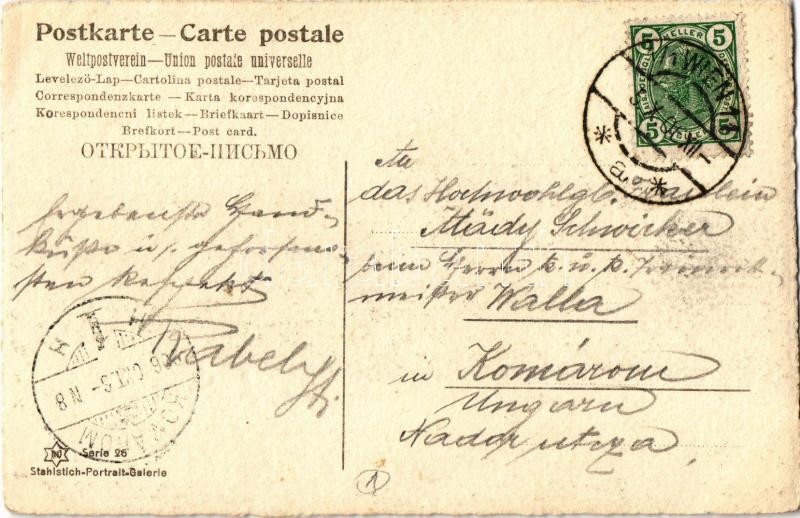 Postkarte — Carte postale
Weltpostverein—Union postale universelle
Levelező-Lap—Cartolina postale—Tarjeta postal
Correspondenzkarte — Karta korespondencyjna
Korespondencni lístek—Briefkaart—Dopisnice
Brefkort—Post card.
ОТКРЫТОЕ-ПИСЬМО
5 HELLER 5
5 5
WIEN
An
das Hochwohlgb. Fräulein
Mädy Schwicker
beim Herrn k. u. k.
meister Walla
in Komárom
Ungarn
Nador utcza
Ergebenste Hand-
küsse u.
sten Respekt
KOMÁROM
Serie 26
Stahlstich-Portrait-Galerie